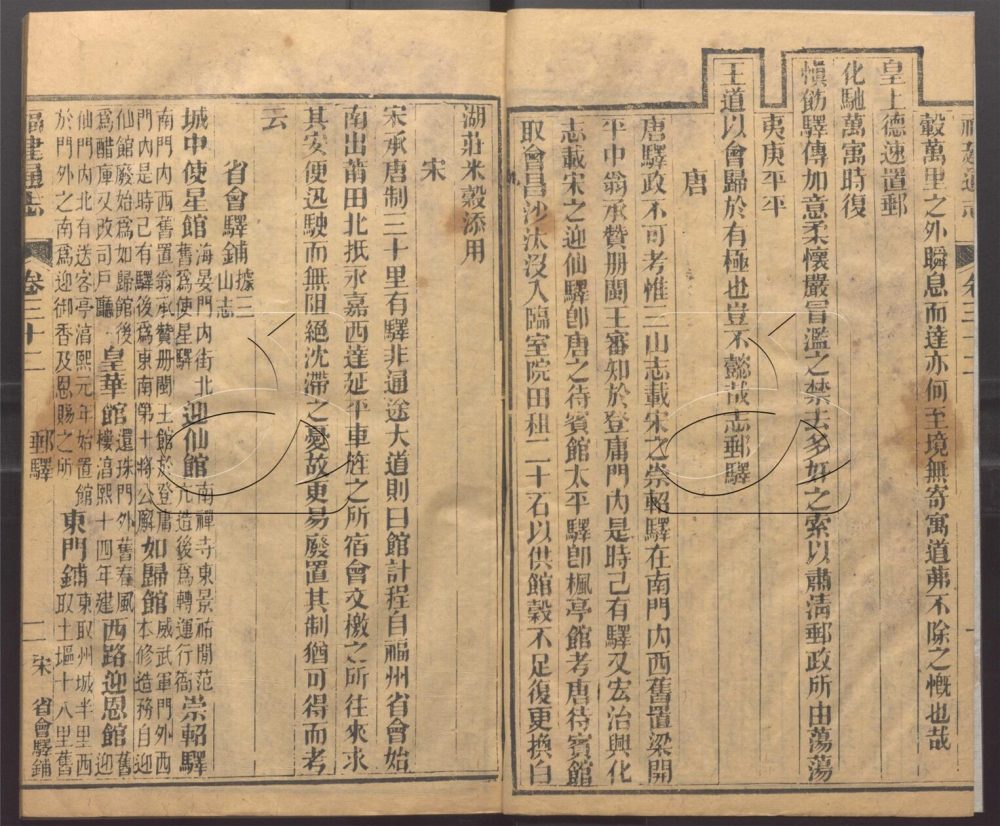 福建通志 卷三十二
轂萬里之外瞬息而達亦何至境無寄寓道茀不除之慨也哉
皇上德速置郵
化馳萬寓時復
愼飭驛傳加意柔懷嚴冒濫之禁去多奸之索以肅淸郵政所由蕩蕩
夷庚平平
王道以會歸於有極也豈不懿哉志郵驛
唐
唐驛政不可考惟三山志載宋之崇軺驛在南門內西舊置梁開
平中翁承贊册閩王審知於登庸門內是時己有驛又宏治興化
志載宋之迎仙驛卽唐之待賓館太平驛卽楓亭館考唐待賓館
取會昌沙汰沒入臨室院田租二十石以供館穀不足復更換白
湖莊米穀添用
宋
宋承唐制三十里有驛非通途大道則曰館計程自福州省會始
南出莆田北抵永嘉西達延平車旌之所宿會文檄之所往來求
其安便迅駛而無阻絕沈滯之憂故更易廢置其制猶可得而考
云
省會驛鋪據三山志
城中使星館海晏門內街北舊爲使星驛迎仙館南禪寺東景祐閒范亢造後爲轉運行衙崇軺驛
南門內西舊置翁承贊册閩王館於登庸門內是時己有驛後爲東南第十將公廨如歸館威武軍門外西本修造務自迎
仙館廢始爲如歸館後爲醋庫又改司戶廳皇華館還珠門外舊春風樓淳熙十四年建西路迎恩館舊迎
仙門內北有送客亭淳熙元年始置館於門外之南爲迎御香及恩賜之所東門鋪東取州城半里西取土塭十八里舊
福建通志 卷三十二 郵驛 二 宋 省會驛鋪